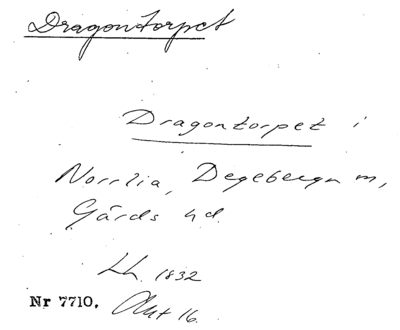 Dragontorpet
Dragontorpet i
Norrlia, Degeberga sn,
Gärds hd.
Lh. 1832
Nr 7710. Akt 16.